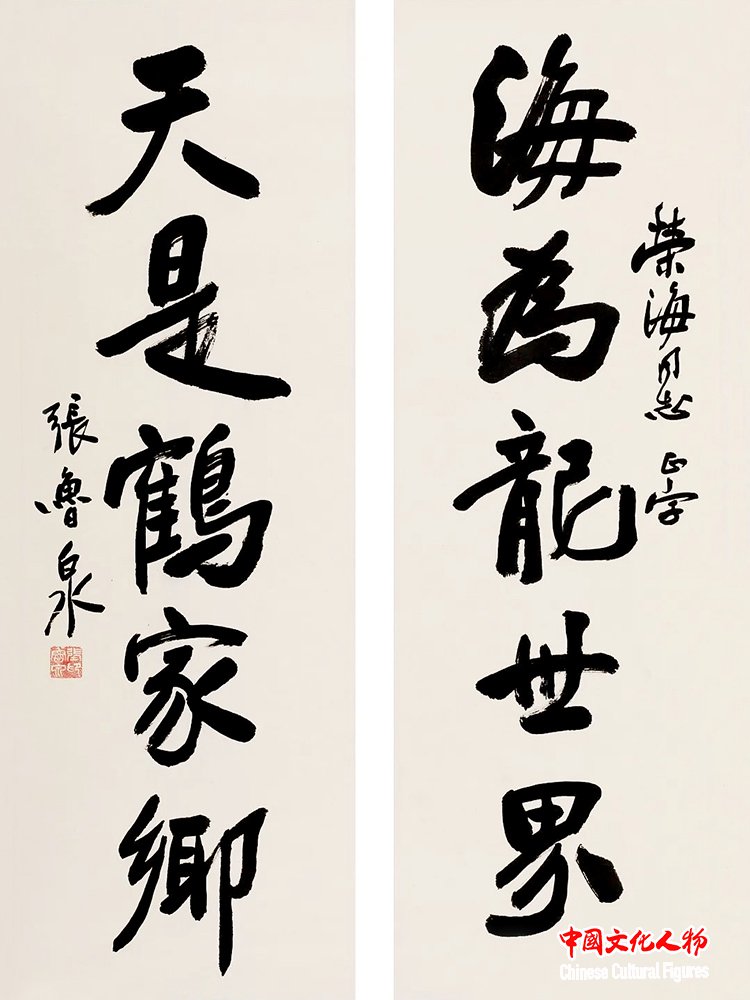 榮海同志 正字
海為龍世界
天是鶴家鄉
張魯泉
中國文化人物
Chinese Cultural Figures